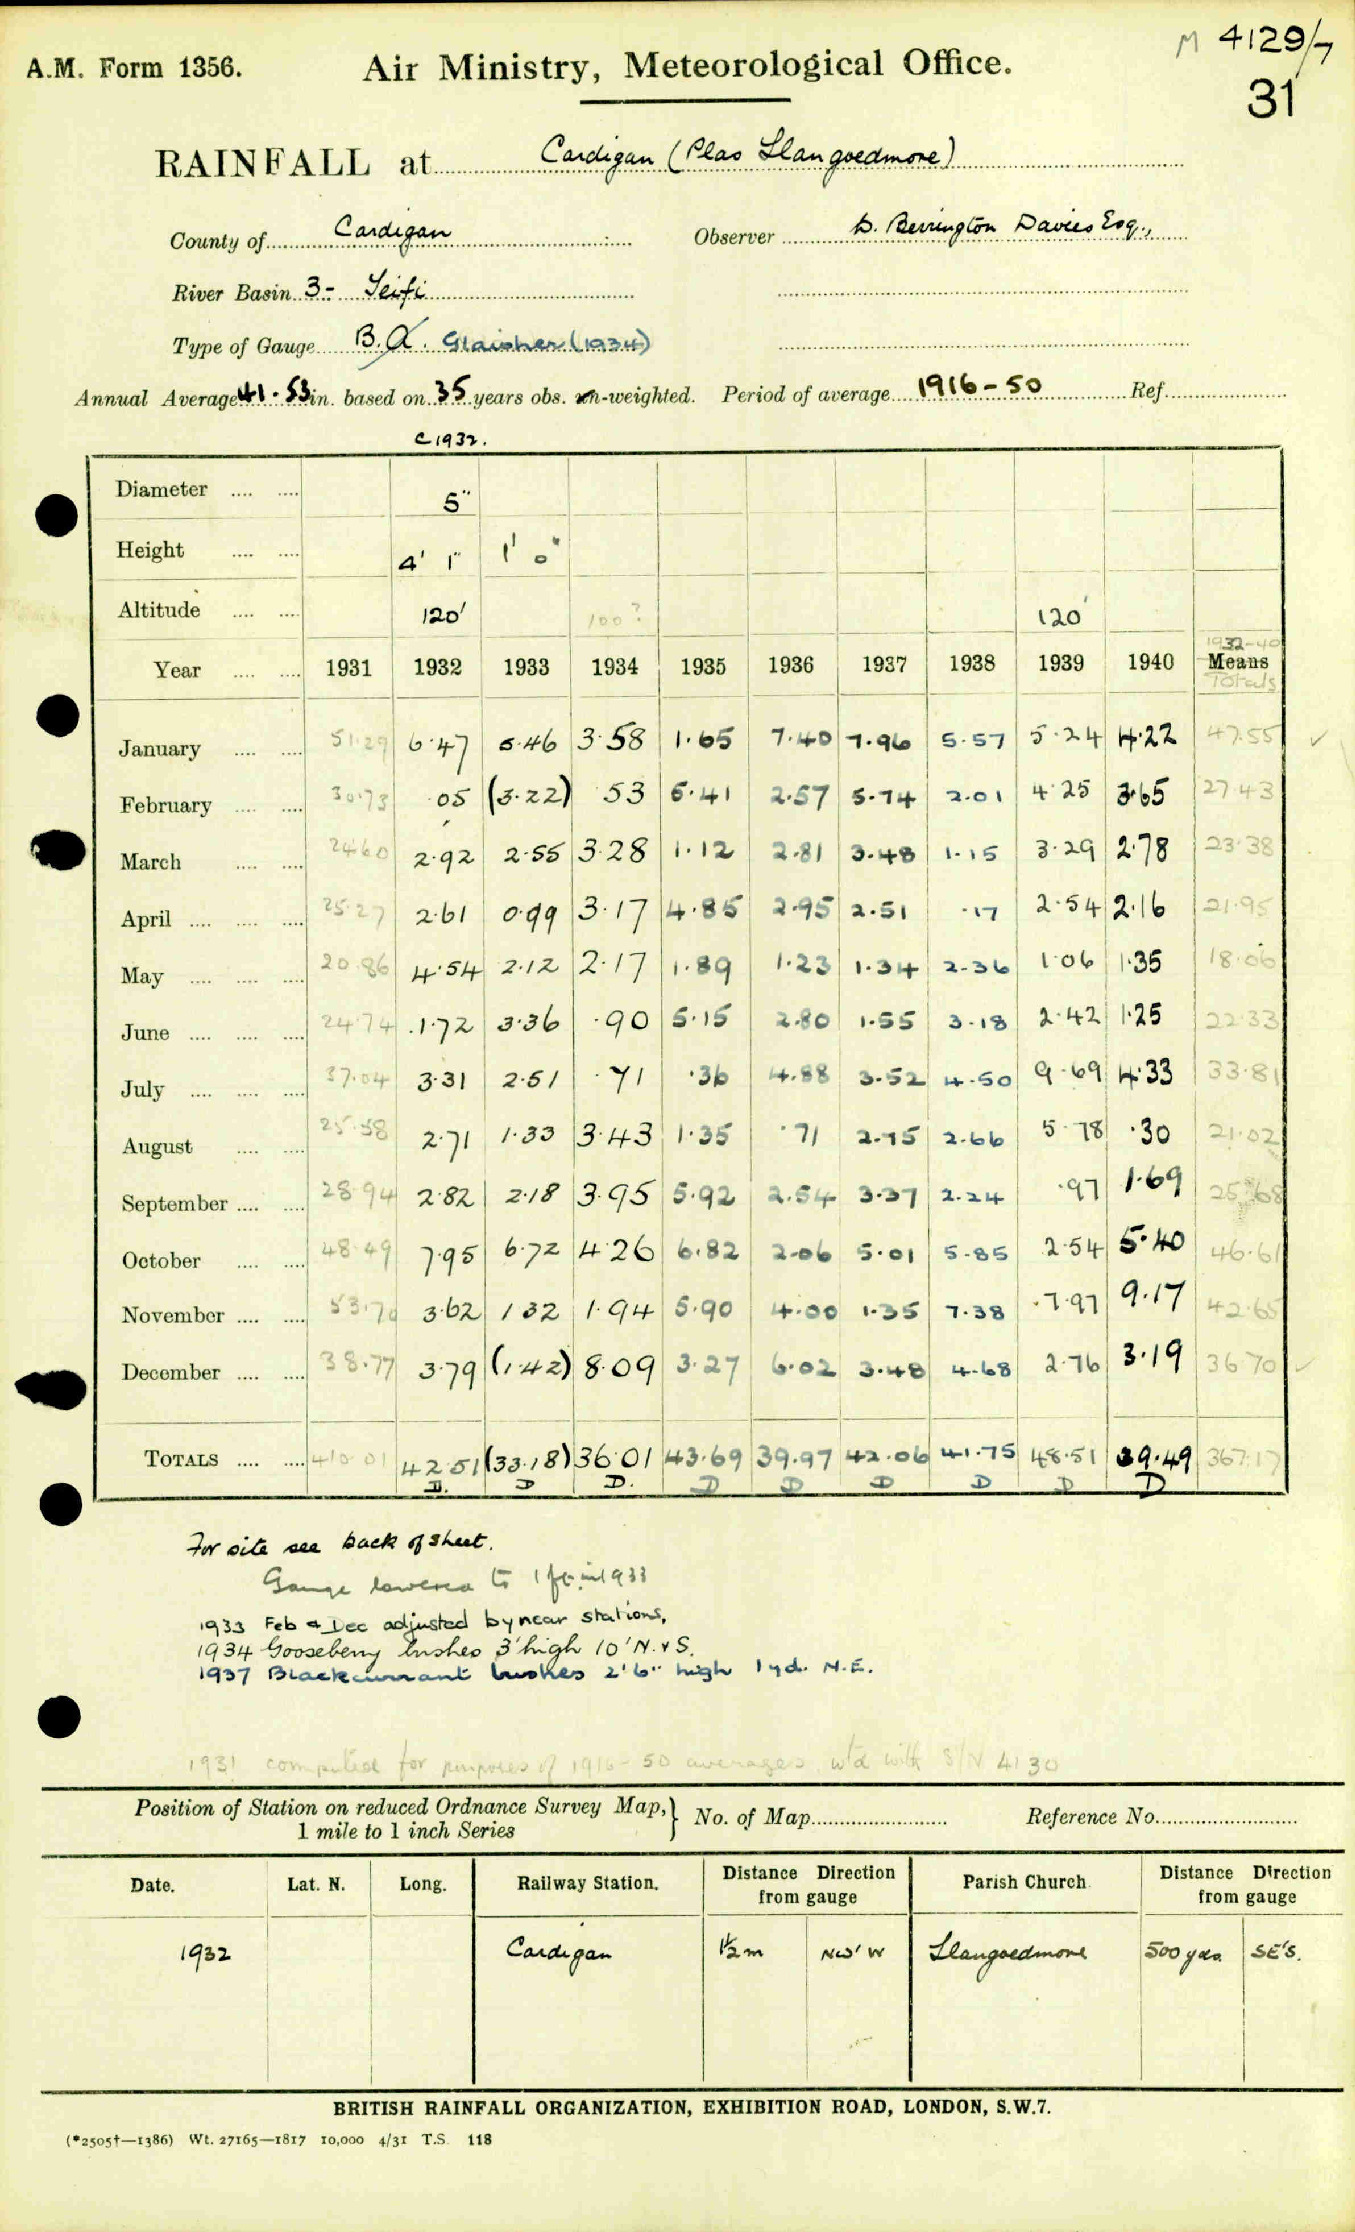 M 4129/7
31
A.M. Form 1356.
Air Ministry, Meteorological Office.
RAINFALL at Cardigan (Plas Llangoedmore)
County of Cardigan Observer D. Berrington Davies Esq.,
River Basin 3- Teifi
Type of Gauge B.a. Glaisher (1934)
Annual Average 41.53 in. based on 35 years obs. un-weighted. Period of average 1916-50 Ref.
c 1932.
Diameter 5"
Height 4' 1" 1' 0"
Altitude 120' 100? 120'
1932-40
Year 1931 1932 1933 1934 1935 1936 1937 1938 1939 1940 Means
Totals
January 51.29 6.47 5.46 3.58 1.65 7.40 7.96 5.57 5.24 4.22 47.55 ✓
February 30.73 .05 (3.22) .53 5.41 2.57 5.74 2.01 4.25 3.65 27.43
March 24.60 2.92 2.55 3.28 1.12 2.81 3.48 1.15 3.29 2.78 23.38
April 25.27 2.61 0.99 3.17 4.85 2.95 2.51 .17 2.54 2.16 21.95
May 20.86 4.54 2.12 2.17 1.89 1.23 1.34 2.36 1.06 1.35 18.06
June 24.74 1.72 3.36 .90 5.15 2.80 1.55 3.18 2.42 1.25 22.33
July 37.04 3.31 2.51 .71 .36 4.88 3.52 4.50 9.69 4.33 33.81
August 25.58 2.71 1.33 3.43 1.35 .71 2.75 2.66 5.78 .30 21.02
September 28.94 2.82 2.18 3.95 5.92 2.54 3.37 2.24 .97 1.69 25.68
October 48.49 7.95 6.72 4.26 6.82 2.06 5.01 5.85 2.54 5.40 46.61
November 53.70 3.62 1.32 1.94 5.90 4.00 1.35 7.38 7.97 9.17 42.65
December 38.77 3.79 (1.42) 8.09 3.27 6.02 3.48 4.68 2.76 3.19 36.70 ✓
TOTALS 410.01 42.51 (33.18) 36.01 43.69 39.97 42.06 41.75 48.51 39.49 367.17
D. D D. D D D D D D
For site see back of sheet.
Gauge lowered to 1 ft in 1933
1933 Feb & Dec adjusted by near stations.
1934 Gooseberry bushes 3' high 10' N. & S.
1937 Blackcurrant bushes 2' 6" high 1 yd. N.E.
1931 computed for purposes of 1916-50 averages w'd with S/N 4130
Position of Station on reduced Ordnance Survey Map,} No. of Map Reference No.
1 mile to 1 inch Series
Date. Lat. N. Long. Railway Station. Distance Direction from gauge Parish Church Distance Direction from gauge
1932 Cardigan 1½ m NW'W Llangoedmore 500 yds. SE'S.
BRITISH RAINFALL ORGANIZATION, EXHIBITION ROAD, LONDON, S.W.7.
(*2505†—1386) Wt. 27165—1817 10,000 4/31 T.S. 118